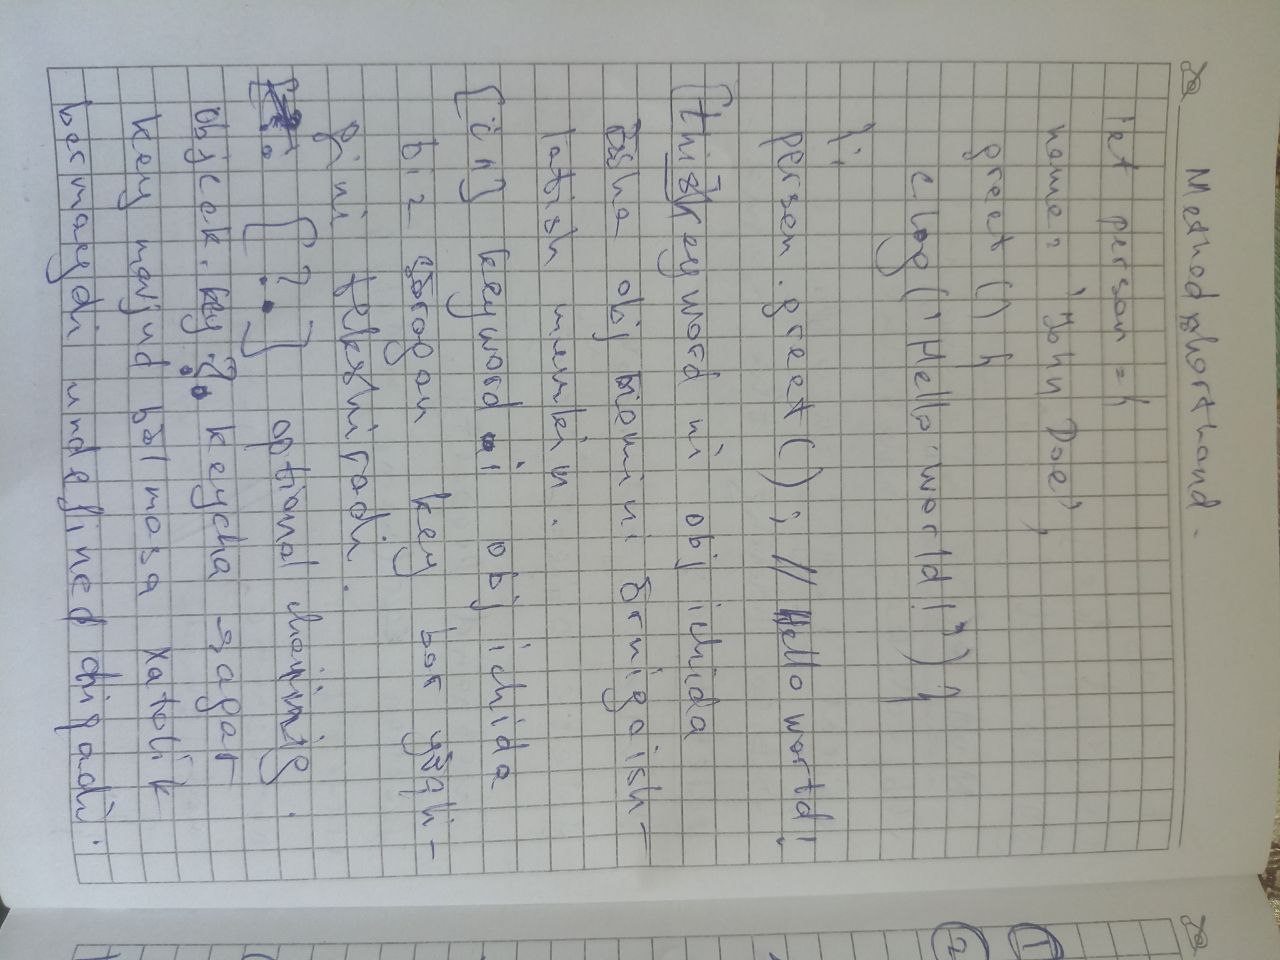 Method shorthand.
let person = {
name: 'John Doe',
greet () {
clog ("Hello world!") }
};
person.greet(); // Hello world!
[this] keyword ni obj ichida
õsha obj nomini õrniga ish-
latish mumkin.
[in] keyword i obj ichida
biz sõrogan key bor yõqli-
gini tekshiradi.
[?.] optional chaining.
object.key?. keycha agar
key mavjud bõlmasa xatolik
bermaydi undefined chiqadi.
1
2